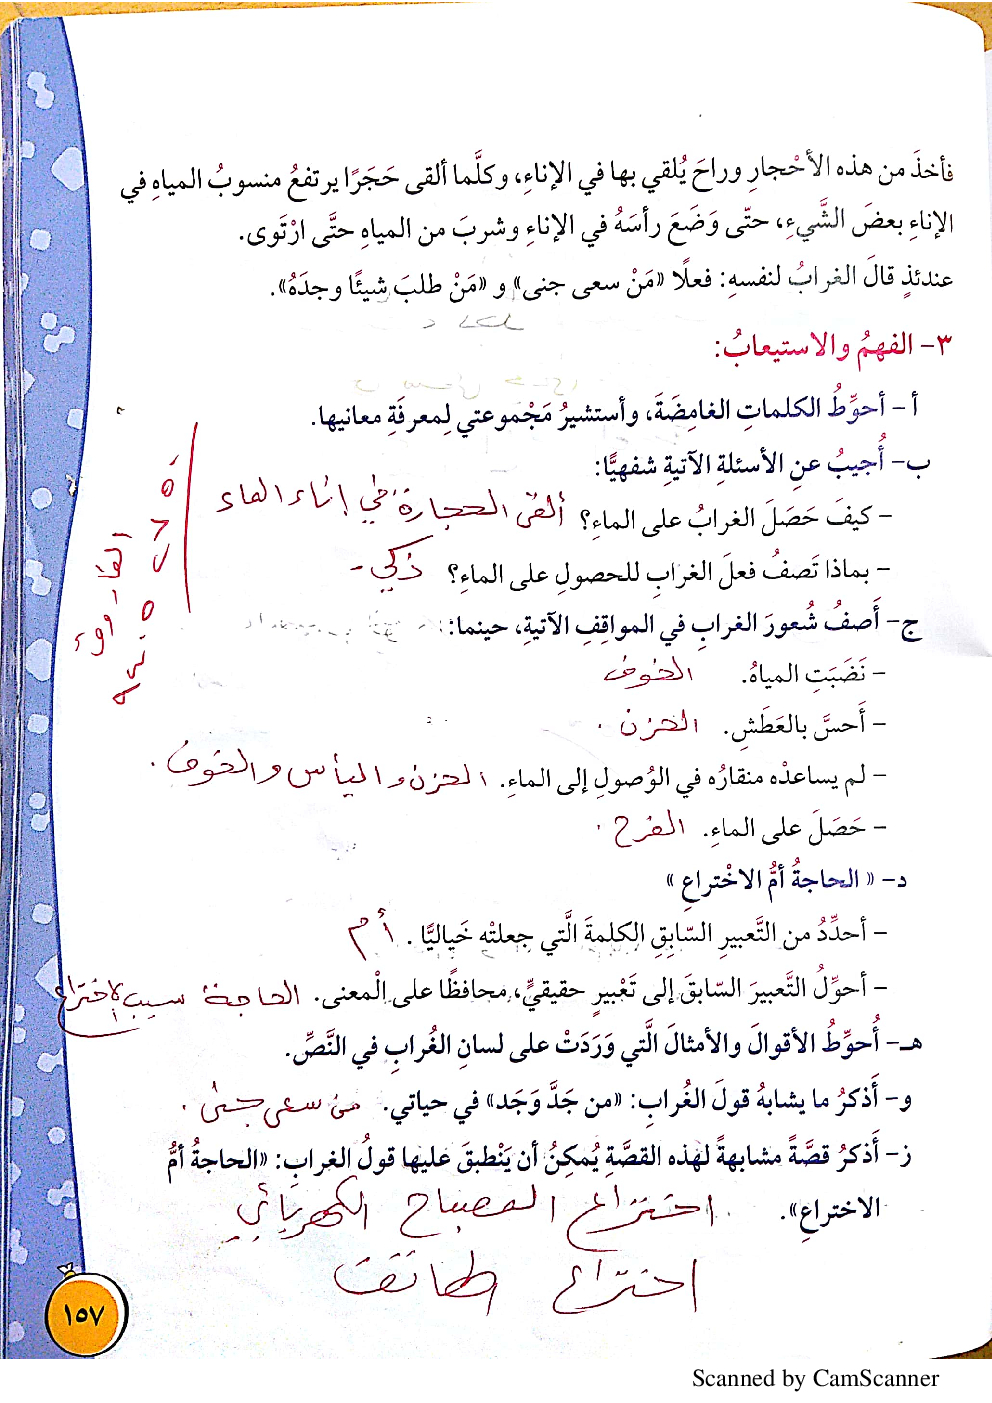 فأخذَ من هذه الأحْجارِ وراحَ يُلقي بها في الإناءِ، وكلَّما ألقى حَجَرًا يرتفعُ منسوبُ المياهِ في
الإناءِ بعضَ الشَّيءِ، حتّى وَضَعَ رأسَهُ في الإناءِ وشربَ من المياهِ حتَّى ارْتَوى.
عندئذٍ قالَ الغرابُ لنفسهِ: فعلًا «مَنْ سعى جنى» و «مَنْ طلبَ شيئًا وجدَهُ».
٣- الفهمُ والاستيعابُ:
أ- أحوِّطُ الكلماتِ الغامِضَةَ، وأستشيرُ مَجْموعتي لِمعرفَةِ معانيها.
ب- أُجيبُ عنِ الأسئلةِ الآتيةِ شفهيًّا:
- كيفَ حَصَلَ الغرابُ على الماءِ؟ ألقى الحجارة في إناء الماء
- بماذا تَصفُ فعلَ الغرابِ للحصولِ على الماءِ؟ ذكي -
ج- أَصفُ شُعورَ الغرابِ في المواقِفِ الآتيةِ، حينما:
- نَضَبَتِ المياهُ. الخوف
- أَحسَّ بالعَطَشِ. الحزن .
- لم يساعدْه منقارُه في الوُصولِ إلى الماءِ. الحزن واليأس والخوف .
- حَصَلَ على الماءِ. الفرح .
د- « الحاجةُ أمُّ الاخْتراعِ »
- أحدِّدُ من التَّعبيرِ السّابقِ الكلمةَ الَّتي جعلتْه خَياليًّا . أم
- أحوِّلُ التَّعبيرَ السّابقَ إلى تَعْبيرٍ حقيقيٍّ، محافظًا على الْمعنى. الحاجة سبب الاختراع
هـ- أُحوِّطُ الأقوالَ والأمثالَ الَّتي وَرَدَتْ على لسانِ الغُرابِ في النَّصِّ.
و- أَذكرُ ما يشابهُ قولَ الغُرابِ: «من جَدَّ وَجَد» في حياتي. من سعى جنى .
ز- أَذكرُ قصَّةً مشابهةً لهذه القصَّةِ يُمكنُ أن يَنْطبقَ عليها قولُ الغرابِ: «الحاجةُ أمُّ
الاختراعِ». اختراع المصباح الكهربائي
اختراع
١٥٧
Scanned by CamScanner